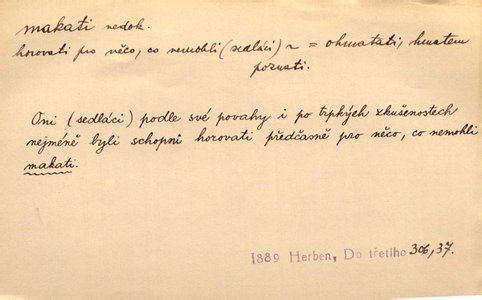 makati nedok.
horovati pro něco, co nemohli (sedláci) ~ = ohmatati, hmatem
poznati.
Oni (sedláci) podle své povahy i po trpkých zkušenostech
nejméně byli schopni horovati předčasně pro něco, co nemohli
makati.
1889 Herben, Do třetího 306, 37.